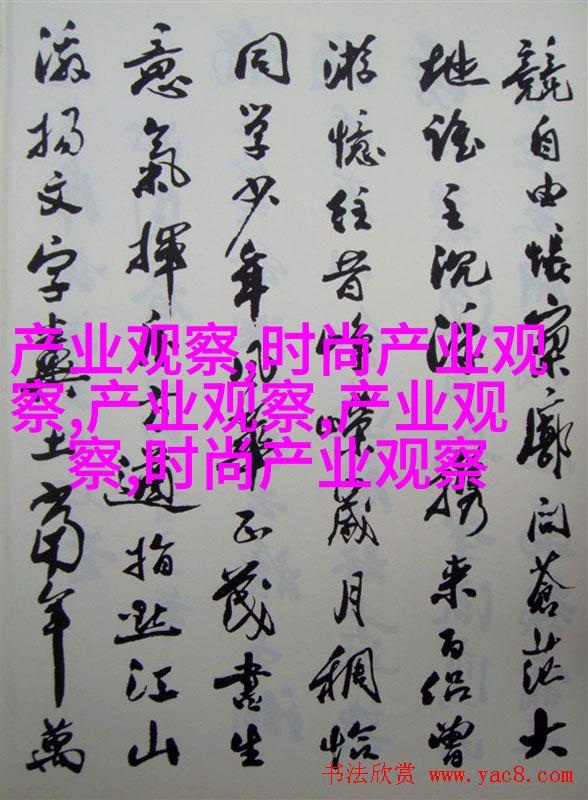 競自由悵寥廓问蒼茫大
地谁主沉浮携来百侣曾
游憶往昔峥嵘歲月稠恰
同学少年风華正茂書生
意氣揮斥方遒指点江山
激揚文字糞土當年萬
产业观察,时尚产业观
察,产业观察,产业观
察,时尚产业观察
书法欣赏 www.yac8.com